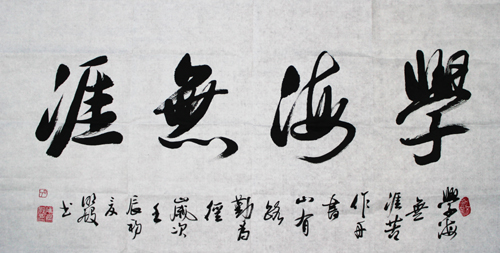 學海無涯
學海
無
涯苦
作舟
書
山有
路
勤為
徑
歲次
壬
辰初
夏
书